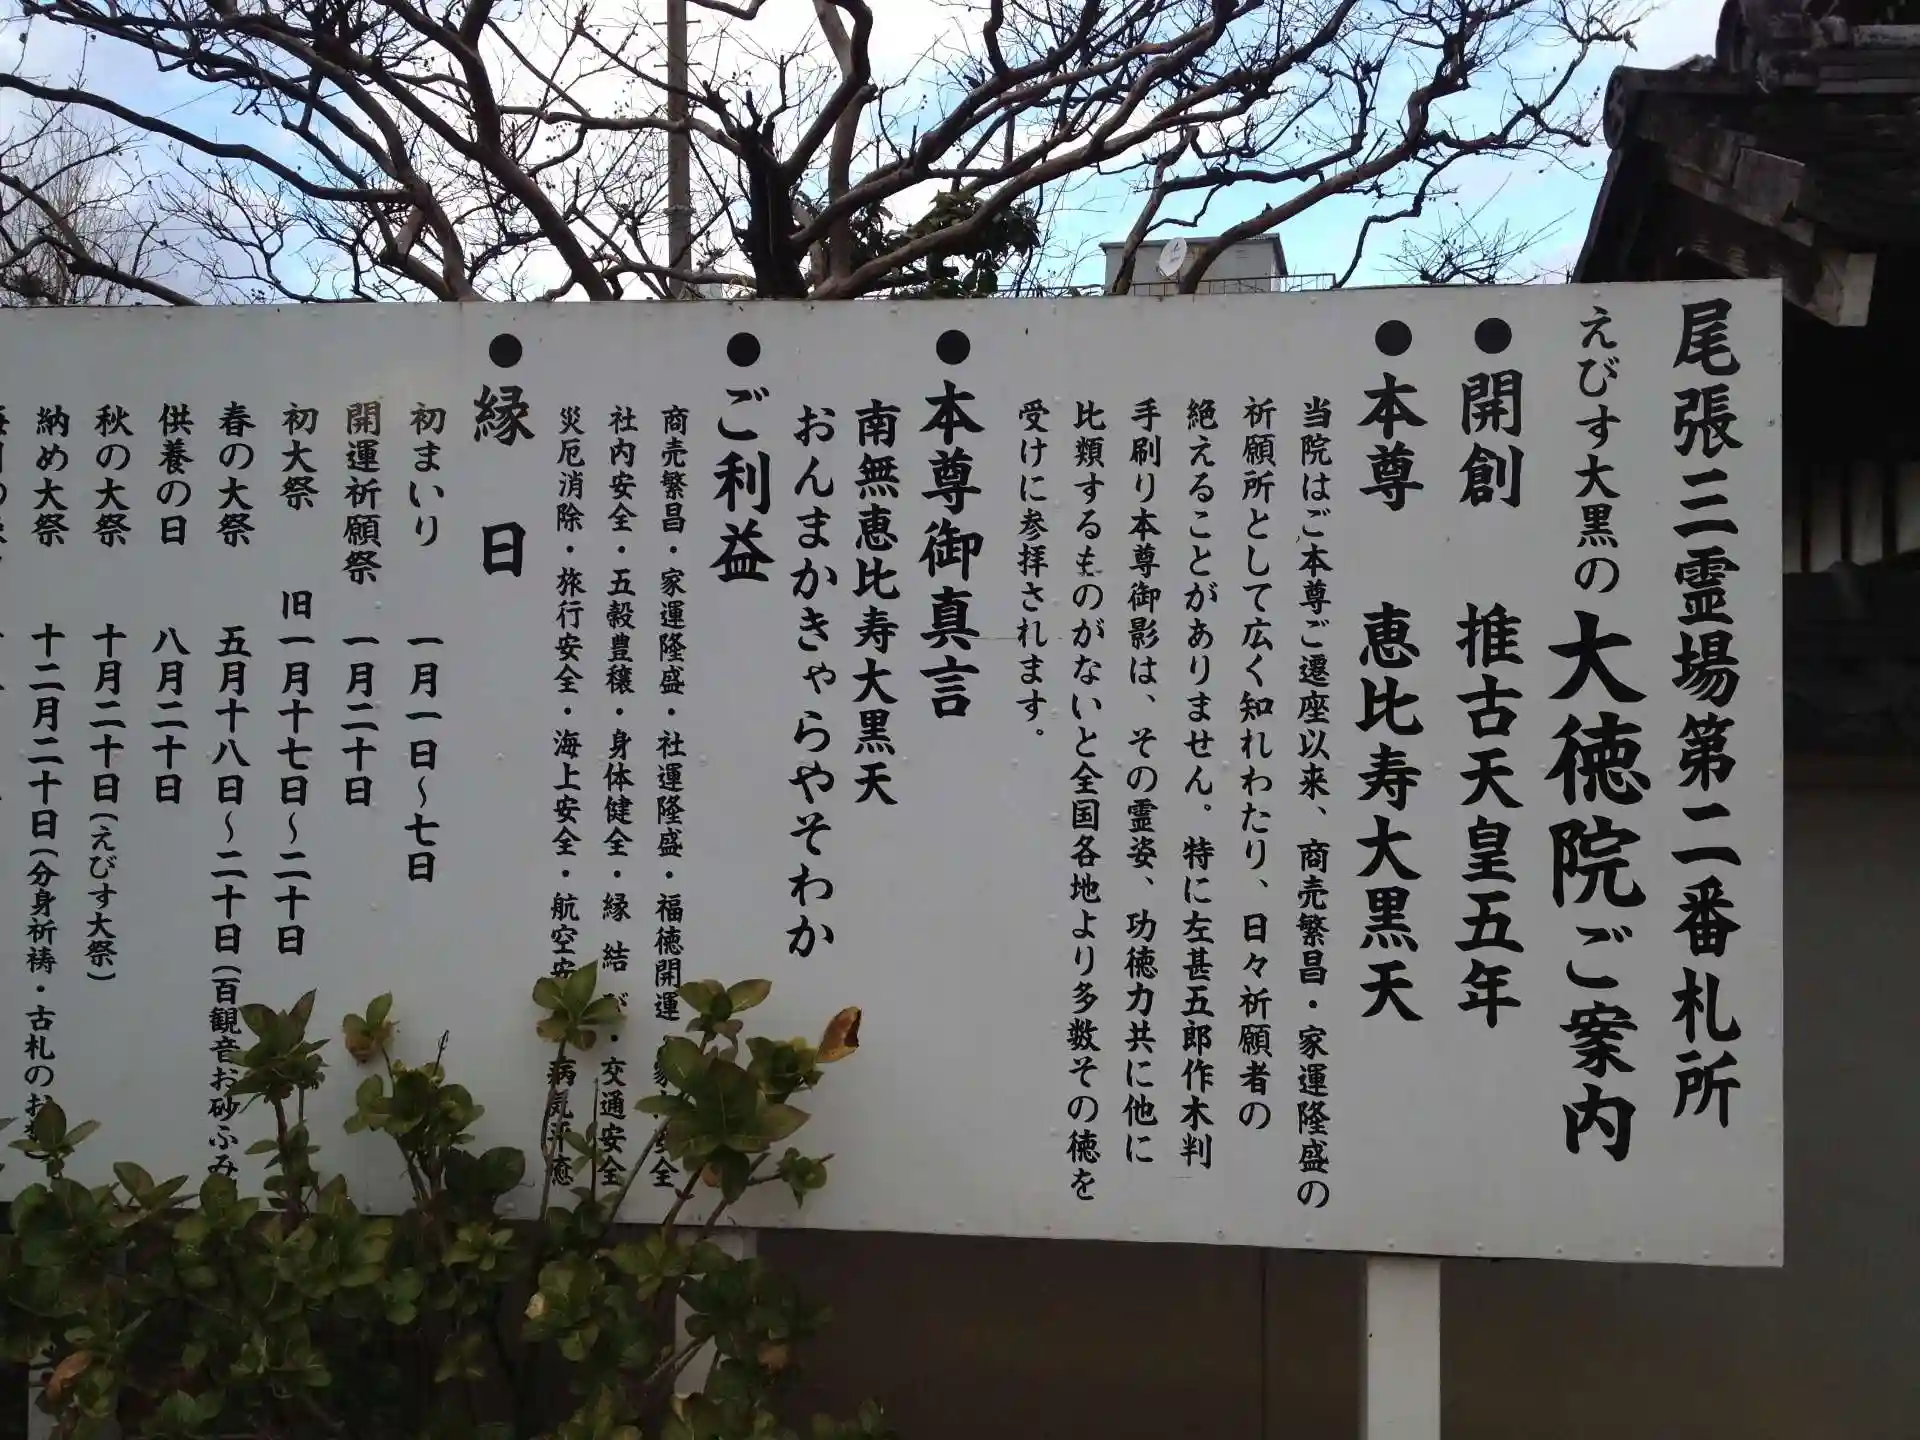 尾張三霊場第二番札所
えびす大黒の大徳院ご案内
●開創 推古天皇五年
●本尊 恵比寿大黒天
当院はご本尊ご遷座以来、商売繁昌・家運隆盛の
祈願所として広く知れわたり、日々祈願者の
絶えることがありません。特に左甚五郎作木判
手刷り本尊御影は、その霊姿、功徳力共に他に
比類するものがないと全国各地より多数その徳を
受けに参拝されます。
●本尊御真言
南無恵比寿大黒天
おんまかきゃらやそわか
●ご利益
商売繁昌・家運隆盛・社運隆盛・福徳開運
社内安全・五穀豊穣・身体健全・縁結び・交通安全
災厄消除・旅行安全・海上安全・航空安 病気平癒
●縁日
初まいり 一月一日〜七日
開運祈願祭 一月二十日
初大祭 旧一月十七日〜二十日
春の大祭 五月十八日〜二十日(百観音お砂ふみ
供養の日 八月二十日
秋の大祭 十月二十日(えびす大祭)
納め大祭 十二月二十日(分身祈祷・古札のお